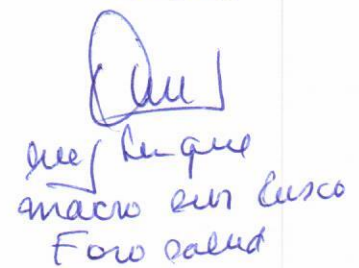 Luque
macro sur Cusco
Foro salud